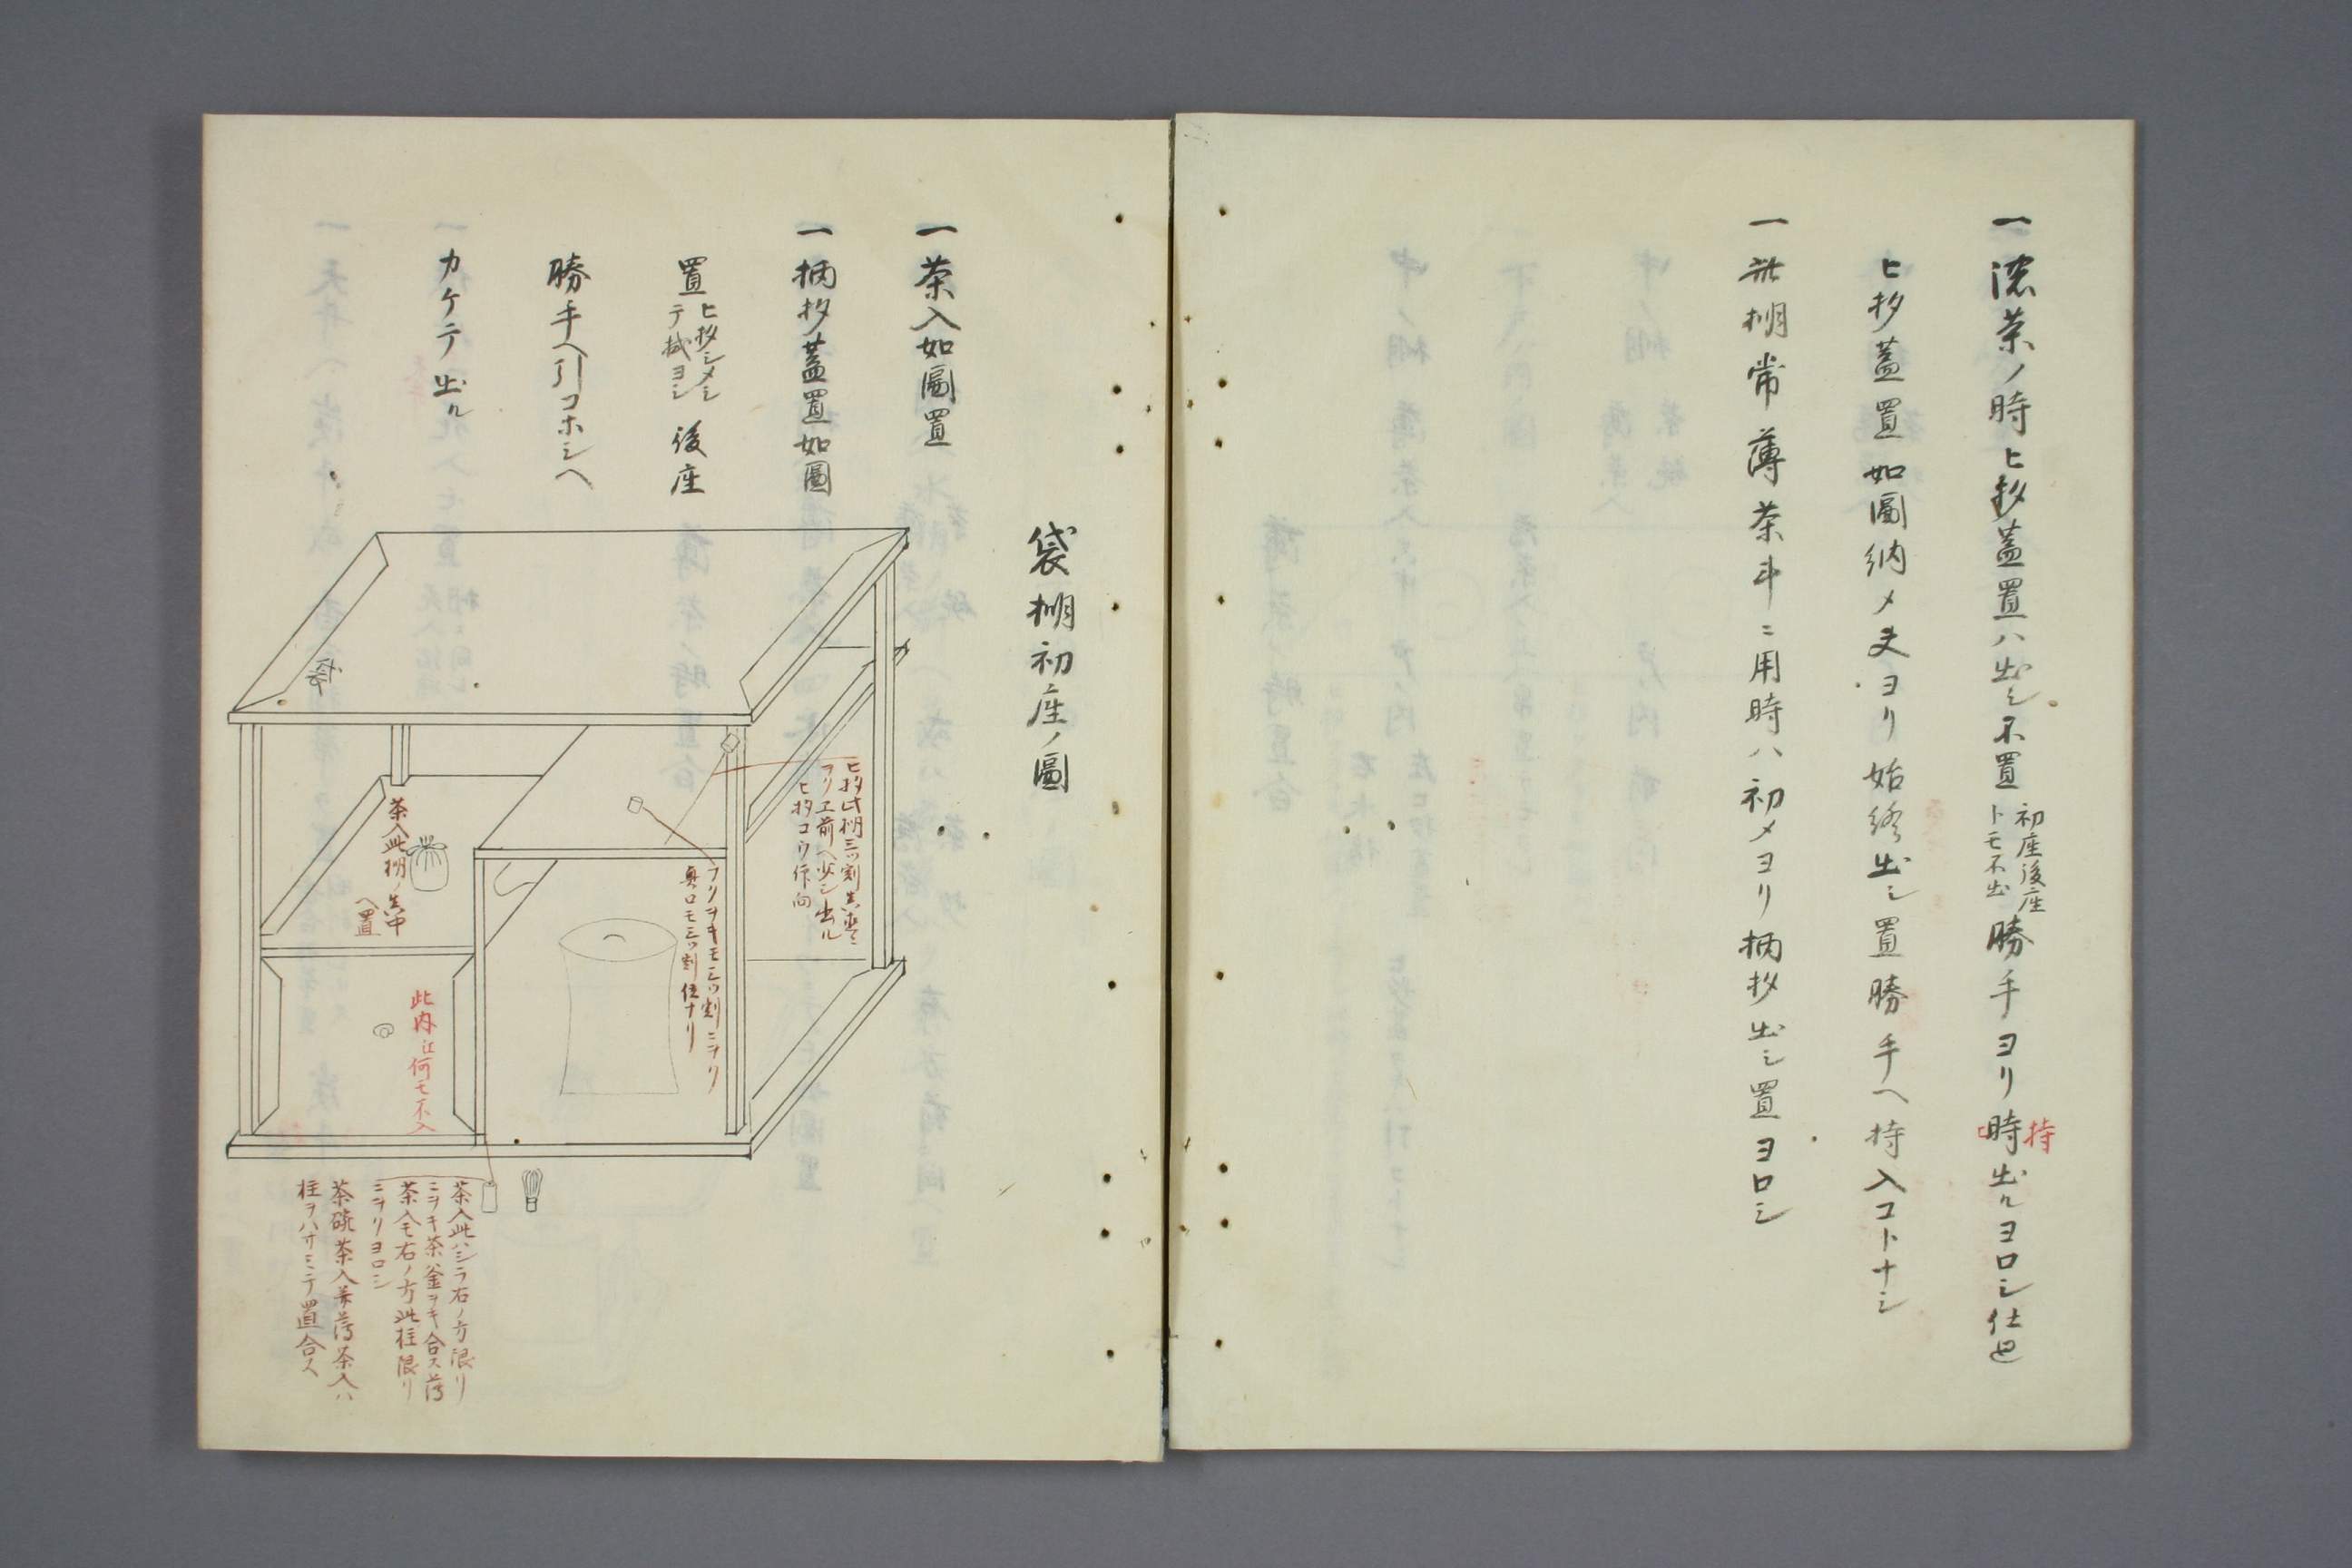 一濃茶ノ時ヒ抄蓋置ハ出シ不置
初座後座
トモ不出
勝手ヨリ時出ルヨロシ仕廻
持
ヒ抄蓋置如圖納メ夫ヨリ始終出シ置勝手ヘ持入コトナシ
一此棚常薄茶斗ニ用時ハ初メヨリ柄抄出シ置ヨロシ
袋棚初座ノ圖
一茶入如圖置
一柄抄蓋置如圖
置
ヒ抄シメシ
テ拭ヨシ
後座
勝手ヘ引コホシヘ
カケテ出ル
ヒ抄此棚三ツ割真中ニ
ヲリ工前ヘ少シ出ル
ヒ抄コウ作向
フリヲキモ三ツ割ニヲリ
奥口モ三ツ割位ナリ
茶入此棚ノ真中
ヘ置
此内江何モ不入
茶入此ハシラ右ノ方限リ
ニヲキ茶釜ヲキ合ス薄
茶入モ右ノ方此柱限リ
ニヲリヨロシ
茶碗茶入薄茶入ハ
柱ヲハサミテ置合ス